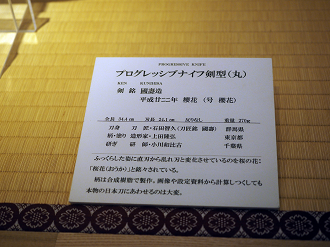 PROGRESSIVE KNIFE
プログレッシブナイフ剣型（丸）
KEN KUNIHIRA
剣 銘 國壽造
平成廿二年 櫻花（号 櫻花）
全長 34.4㎝ 刃長 24.1㎝ 反りなし 重量 270g
刀身 刀 匠・石田智久（刀匠銘 國壽） 群馬県
柄・塗り 造形家・上田隆弘 東京都
研ぎ 研 師・小川和比古 千葉県
ふっくらした姿に直刃から乱れ刃と変化させているのを桜の花；
「桜花（おうか）」と銘々されている。
柄は合成樹脂で製作。画像や設定資料から計算しつくしても
本物の日本刀にあわせるのは大変。